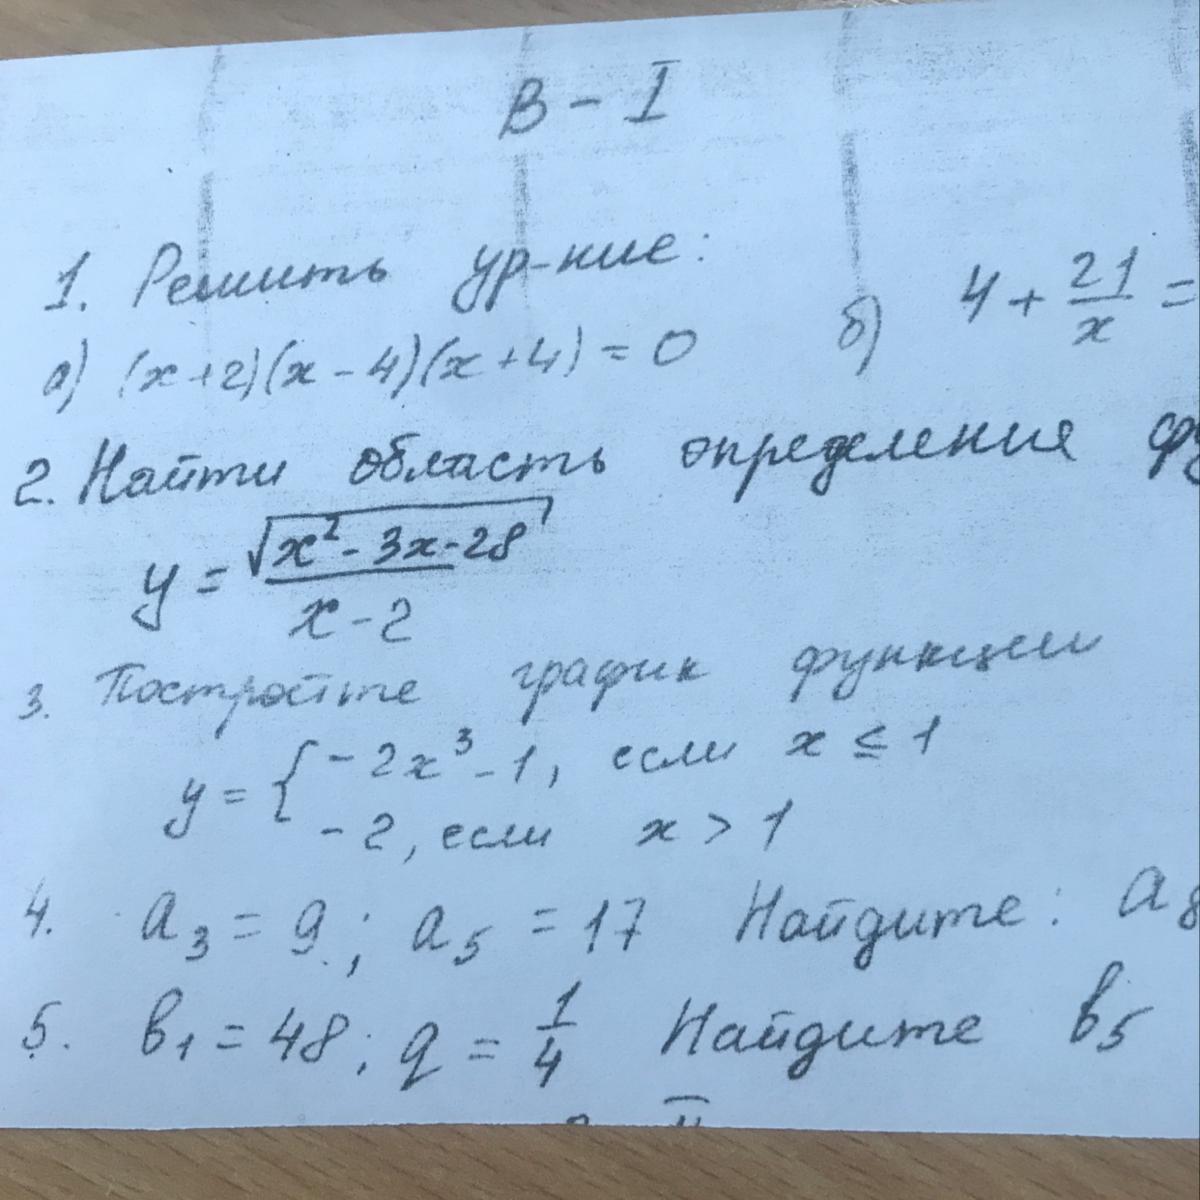 В - I
1. Решить ур-ние:
а) (x+2)(x-4)(x+4)=0 б) 4 + 21/x =
2. Найти область определения
y = √(x² - 3x - 28) / (x - 2)
3. Постройте график функции
y = { -2x³ - 1, если x ≤ 1
-2, если x > 1
4. a₃ = 9; a₅ = 17 Найдите: a₈
5. b₁ = 48; q = 1/4 Найдите b₅